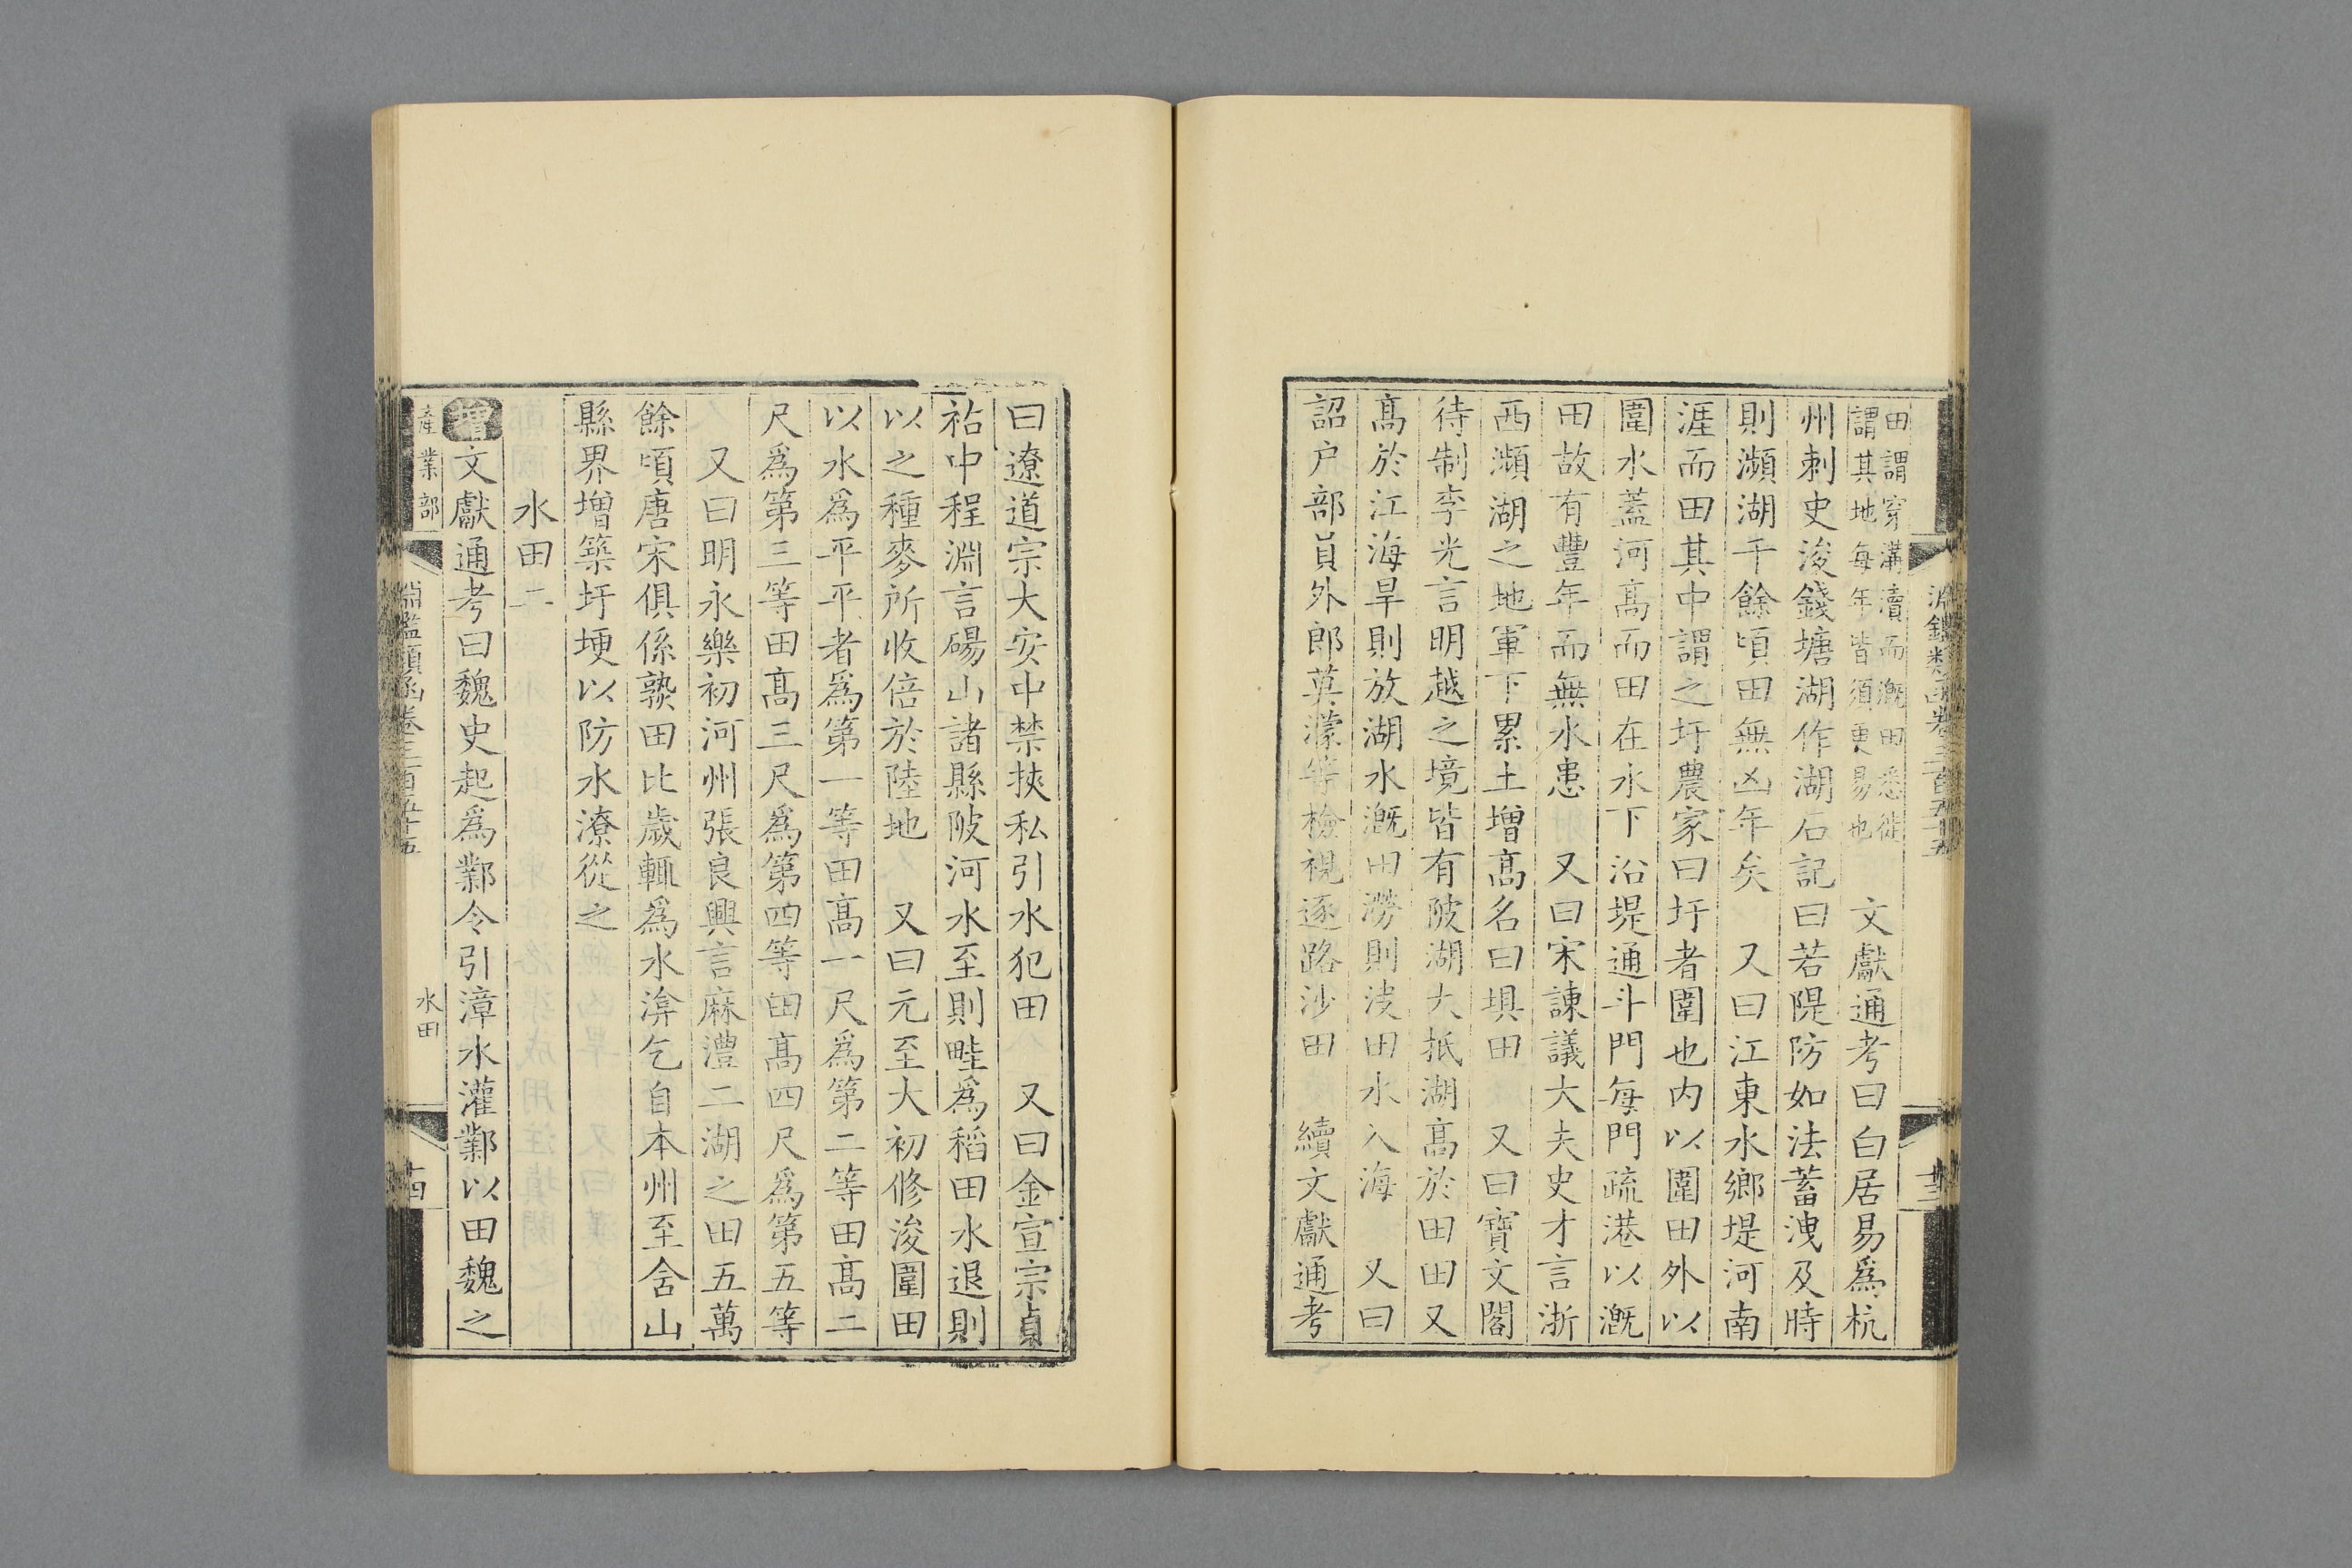 淵鑑類函卷三百五十五
田謂穿溝瀆而漑田悉徙
謂其地每年皆須更易也
文獻通考曰白居易爲杭
州刺史浚錢塘湖作湖石記曰若隄防如法蓄洩及時
則瀕湖千餘頃田無凶年矣　又曰江東水鄉堤河南
涯而田其中謂之圩農家曰圩者圍也内以圍田外以
圍水蓋河高而田在水下沿堤通斗門每門疏港以漑
田故有豐年而無水患　又曰宋諫議大夫史才言浙
西瀕湖之地軍下累土增高名曰埧田　又曰寶文閣
待制李光言明越之境皆有陂湖大抵湖高於田田又
高於江海旱則放湖水漑田澇則决田水入海　又曰
詔户部員外郎莫濛等檢視逐路沙田　續文獻通考
曰遼道宗大安中禁挾私引水犯田　又曰金宣宗貞
祐中程淵言碭山諸縣陂河水至則畦爲稻田水退則
以之種麥所收倍於陸地　又曰元至大初修浚圍田
以水爲平平者爲第一等田高一尺爲第二等田高二
尺爲第三等田高三尺爲第四等田高四尺爲第五等
又曰明永樂初河州張良興言麻澧二湖之田五萬
餘頃唐宋俱係孰田比歲輒爲水渰乞自本州至含山
縣界增築圩埂以防水潦從之
水田二
增文獻通考曰魏史起爲鄴令引漳水灌鄴以田魏之
產業部
淵鑑類函卷三百五十五
水田